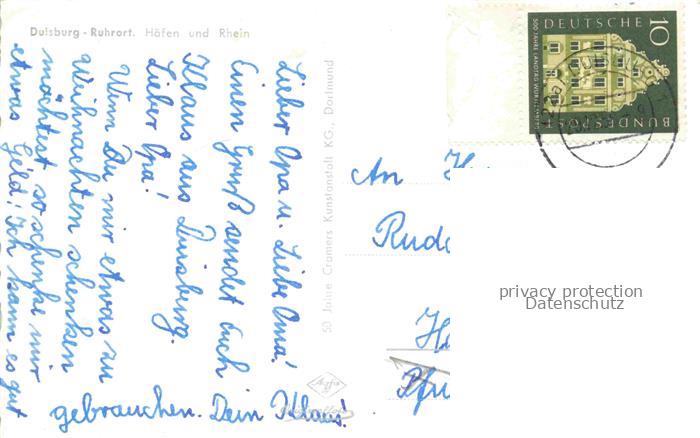 Duisburg - Ruhrort. Häfen und Rhein
Lieber Opa u. Liebe Oma!
Einen Gruß sendet Euch
Klaus aus Duisburg.
Lieber Opa!
Wenn Du mir etwas zu
Weihnachten schenken
möchtest so schenke mir
etwas Geld! Ich kann es gut
gebrauchen. Dein Klaus!
50 Jahre Cramers Kunstanstalt KG., Dortmund
Agfa
DEUTSCHE
10
500 JAHRE LANDTAG WÜRTTEMBERG
BUNDESPOST
An H
Rudo
H
Pfu
privacy protection
Datenschutz